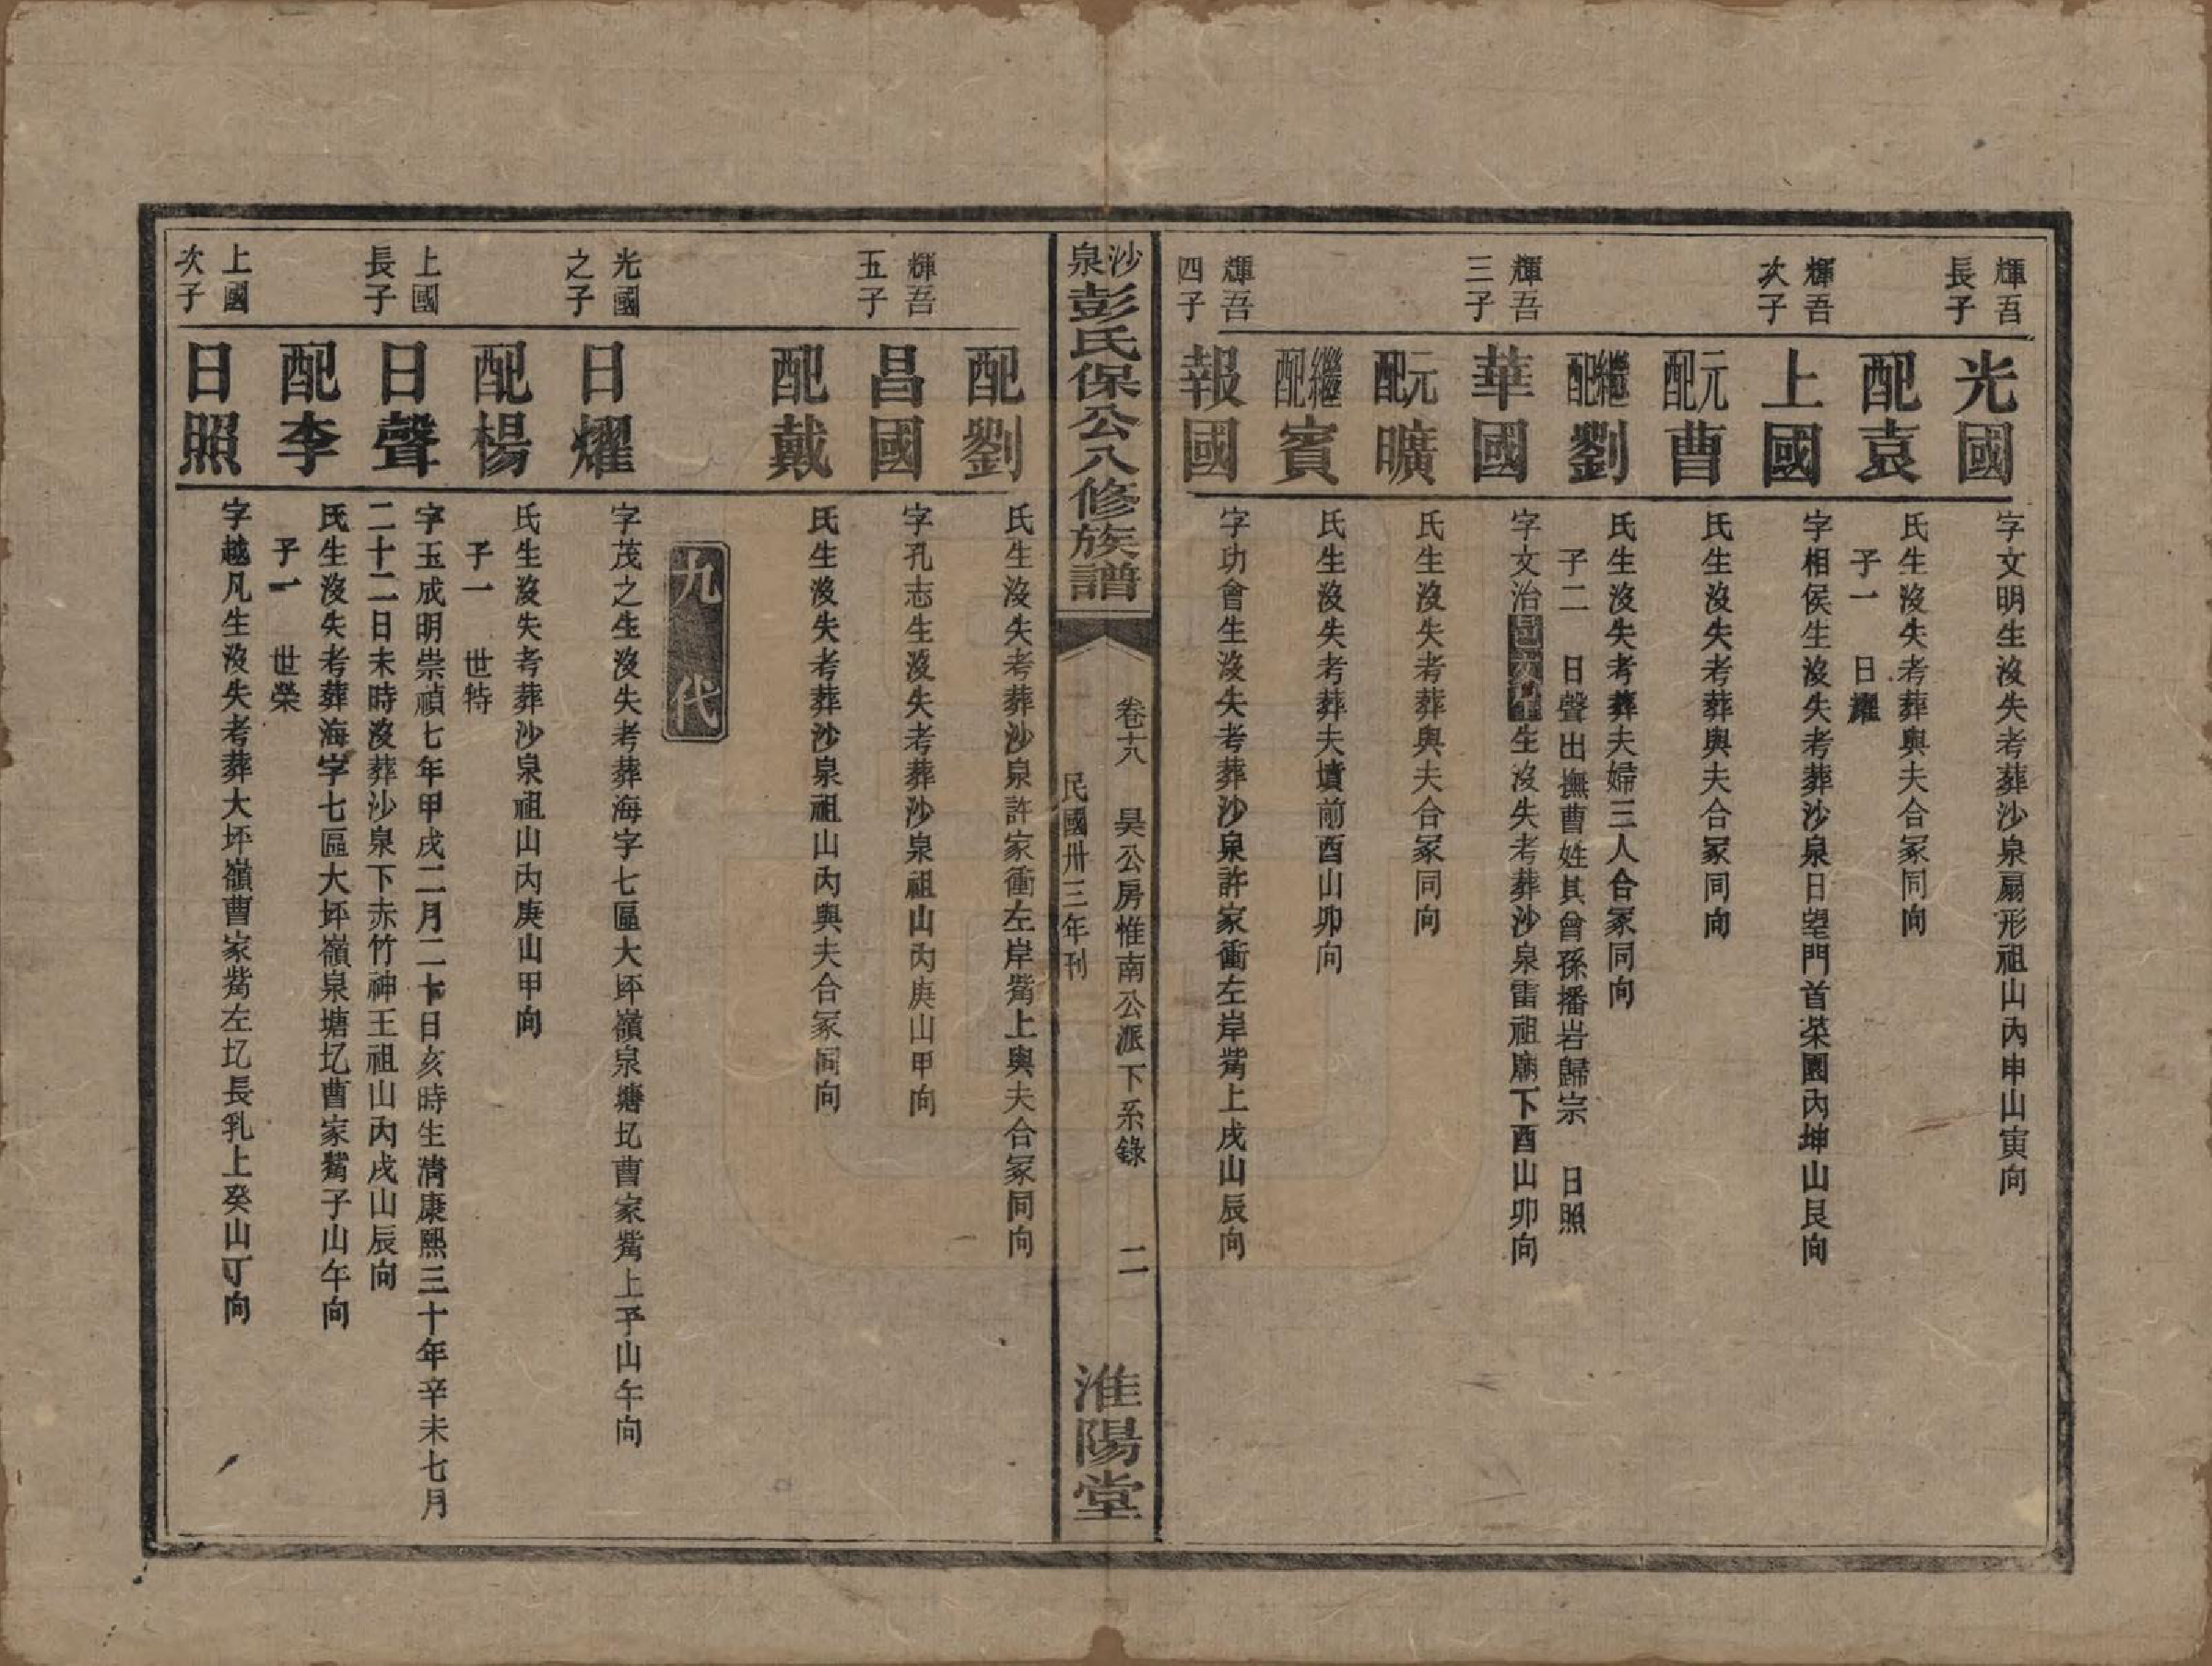 輝吾長子
光國
字文明生沒失考葬沙泉扇形祖山內申山寅向
配袁
氏生沒失考葬與夫合冢同向
子一　日耀
輝吾次子
上國
字相侯生沒失考葬沙泉日望門首菜園內坤山艮向
元配曹
氏生沒失考葬與夫合冢同向
繼配劉
氏生沒失考葬夫婦三人合冢同向
子二　日聲出撫曹姓其曾孫播岩歸宗　日照
輝吾三子
華國
字文治生沒失考葬沙泉雷祖廟下酉山卯向
元配曠
氏生沒失考葬與夫合冢同向
繼配賓
氏生沒失考葬夫墳前酉山卯向
輝吾四子
報國
字功會生沒失考葬沙泉許家衝左岸觜上戌山辰向
沙泉彭氏保公八修族譜
卷十八　昊公房惟南公派下系錄　二
民國卅三年刊
淮陽堂
配劉
氏生沒失考葬沙泉許家衝左岸觜上與夫合冢同向
輝吾五子
昌國
字孔志生沒失考葬沙泉祖山內庚山甲向
配戴
氏生沒失考葬沙泉祖山內與夫合冢同向
九代
光國之子
日燿
字茂之生沒失考葬海字七區大坪嶺泉塘圵曹家觜上子山午向
配楊
氏生沒失考葬沙泉祖山內庚山甲向
子一　世特
上國長子
日聲
字玉成明崇禎七年甲戌二月二十日亥時生清康熙三十年辛未七月
二十二日未時沒葬沙泉下赤竹神王祖山內戌山辰向
配李
氏生沒失考葬海字七區大坪嶺泉塘圵曹家觜子山午向
子一　世榮
上國次子
日照
字越凡生沒失考葬大坪嶺曹家觜左圵長乳上癸山丁向